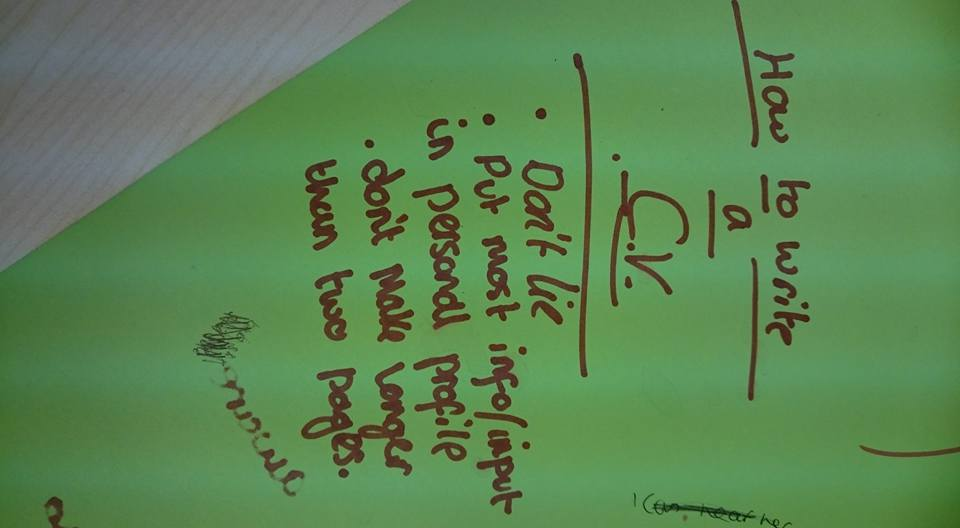 How to write
a
C.V.
• Don't lie
• Put most info/input
in personal profile
• don't make longer
than two pages.